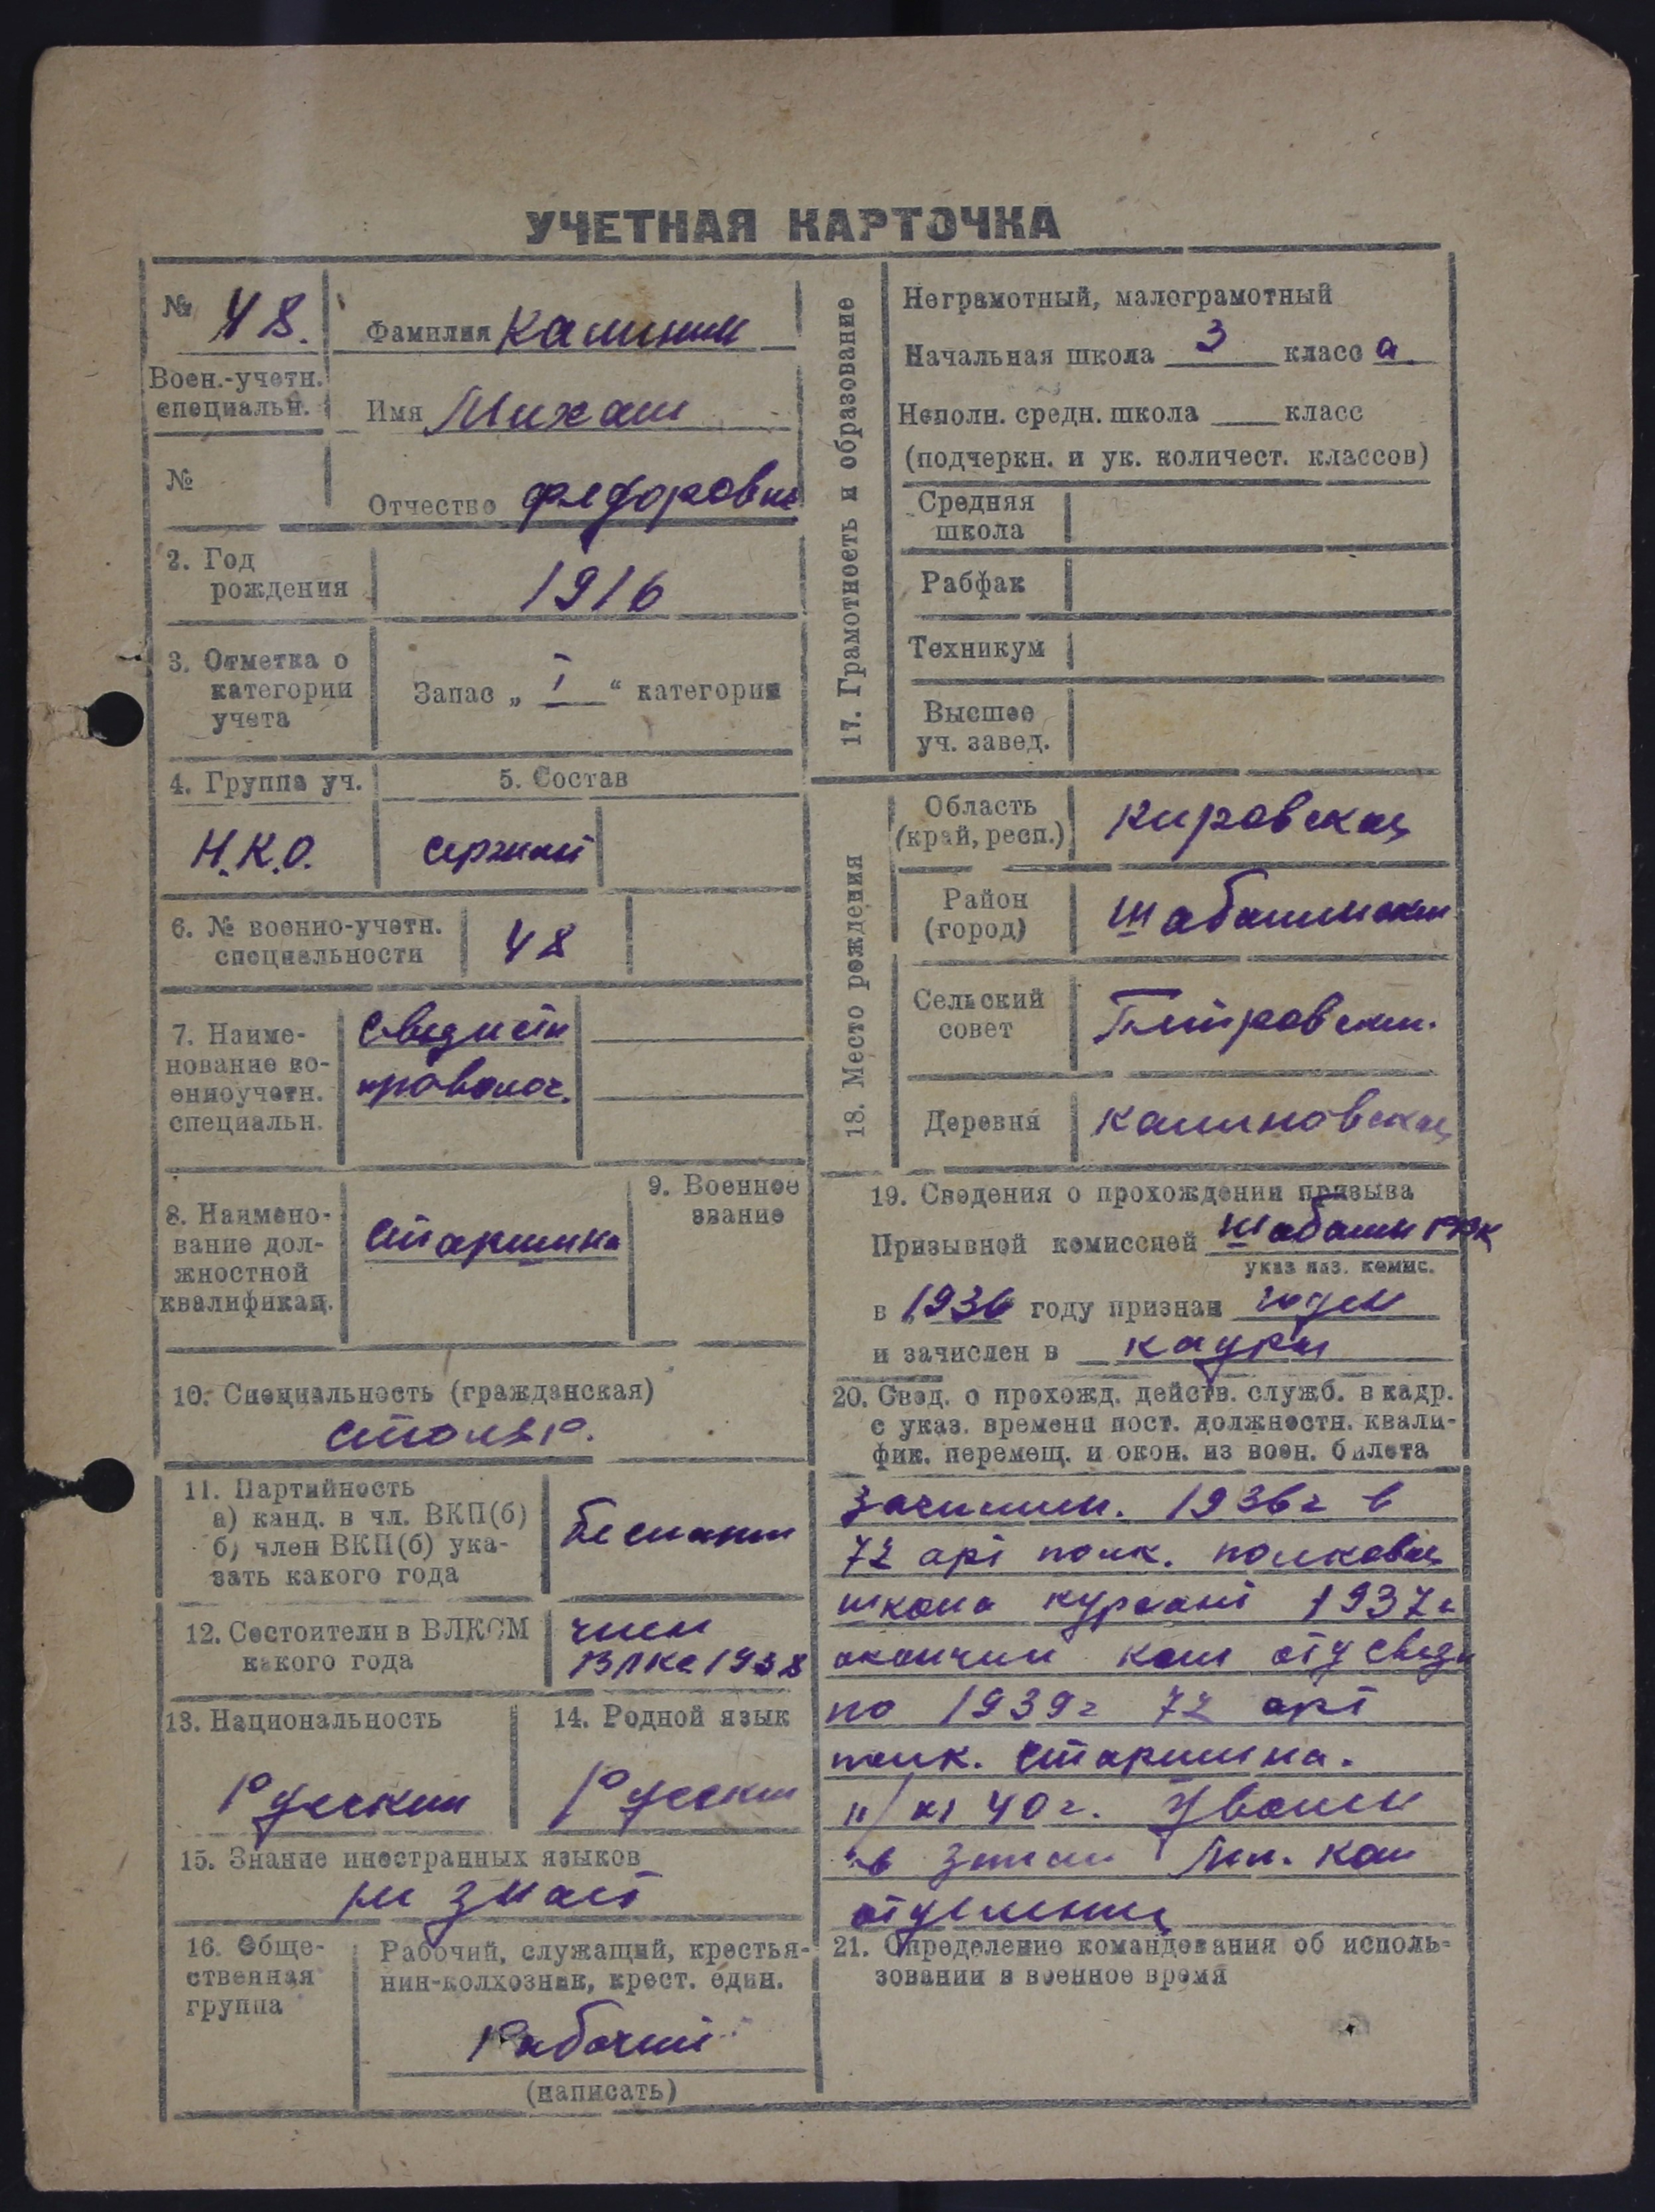 УЧЕТНАЯ КАРТОЧКА
№ 48.
Воен.-учетн.
специальн.
№
Фамилия Калинин
Имя Михаил
Отчество Федорович
2. Год
рождения
1916
3. Отметка о
категории
учета
Запас „ I “ категории
4. Группа уч.
Н.К.О.
5. Состав
сержант
6. № военно-учетн.
специальности
48
7. Наиме-
нование во-
енноучетн.
специальн.
Связисты
проволоч.
8. Наимено-
вание дол-
жностной
квалификац.
Старшина
9. Военное
звание
10. Специальность (гражданская)
столяр.
11. Партийность
а) канд. в чл. ВКП(б)
б) член ВКП(б) ука-
зать какого года
Беспарт
12. Состоит ли в ВЛКСМ
какого года
член
ВЛКС 1938
13. Национальность
Русский
14. Родной язык
Русский
15. Знание иностранных языков
не знает
16. Обще-
ственная
группа
Рабочий, служащий, крестья-
нин-колхозник, крест. един.
Рабочий
(написать)
17. Грамотность и образование
Неграмотный, малограмотный
Начальная школа 3 класс а
Неполн. средн. школа класс
(подчеркн. и ук. количест. классов)
Средняя
школа
Рабфак
Техникум
Высшее
уч. завед.
18. Место рождения
Область
(край, респ.)
Кировская
Район
(город)
Шабалинский
Сельский
совет
Петровский.
Деревня
Калиновская
19. Сведения о прохождении призыва
Призывной комиссией Шабалин РВК
указ наз. комис.
в 1936 году признан годен
и зачислен в кадры
20. Свед. о прохожд. действ. служб. в кадр.
с указ. времени пост. должностн. квали-
фик. перемещ. и окон. из воен. билета
Зачислен. 1936 г в
72 арт полк. полковая
школа курсант 1937 г
окончил ком отд связи
по 1939 г 72 арт
полк. Старшина.
40 г. Уволен
в запас Мл. ком
отделения
21. Определение командования об исполь-
зовании в военное время